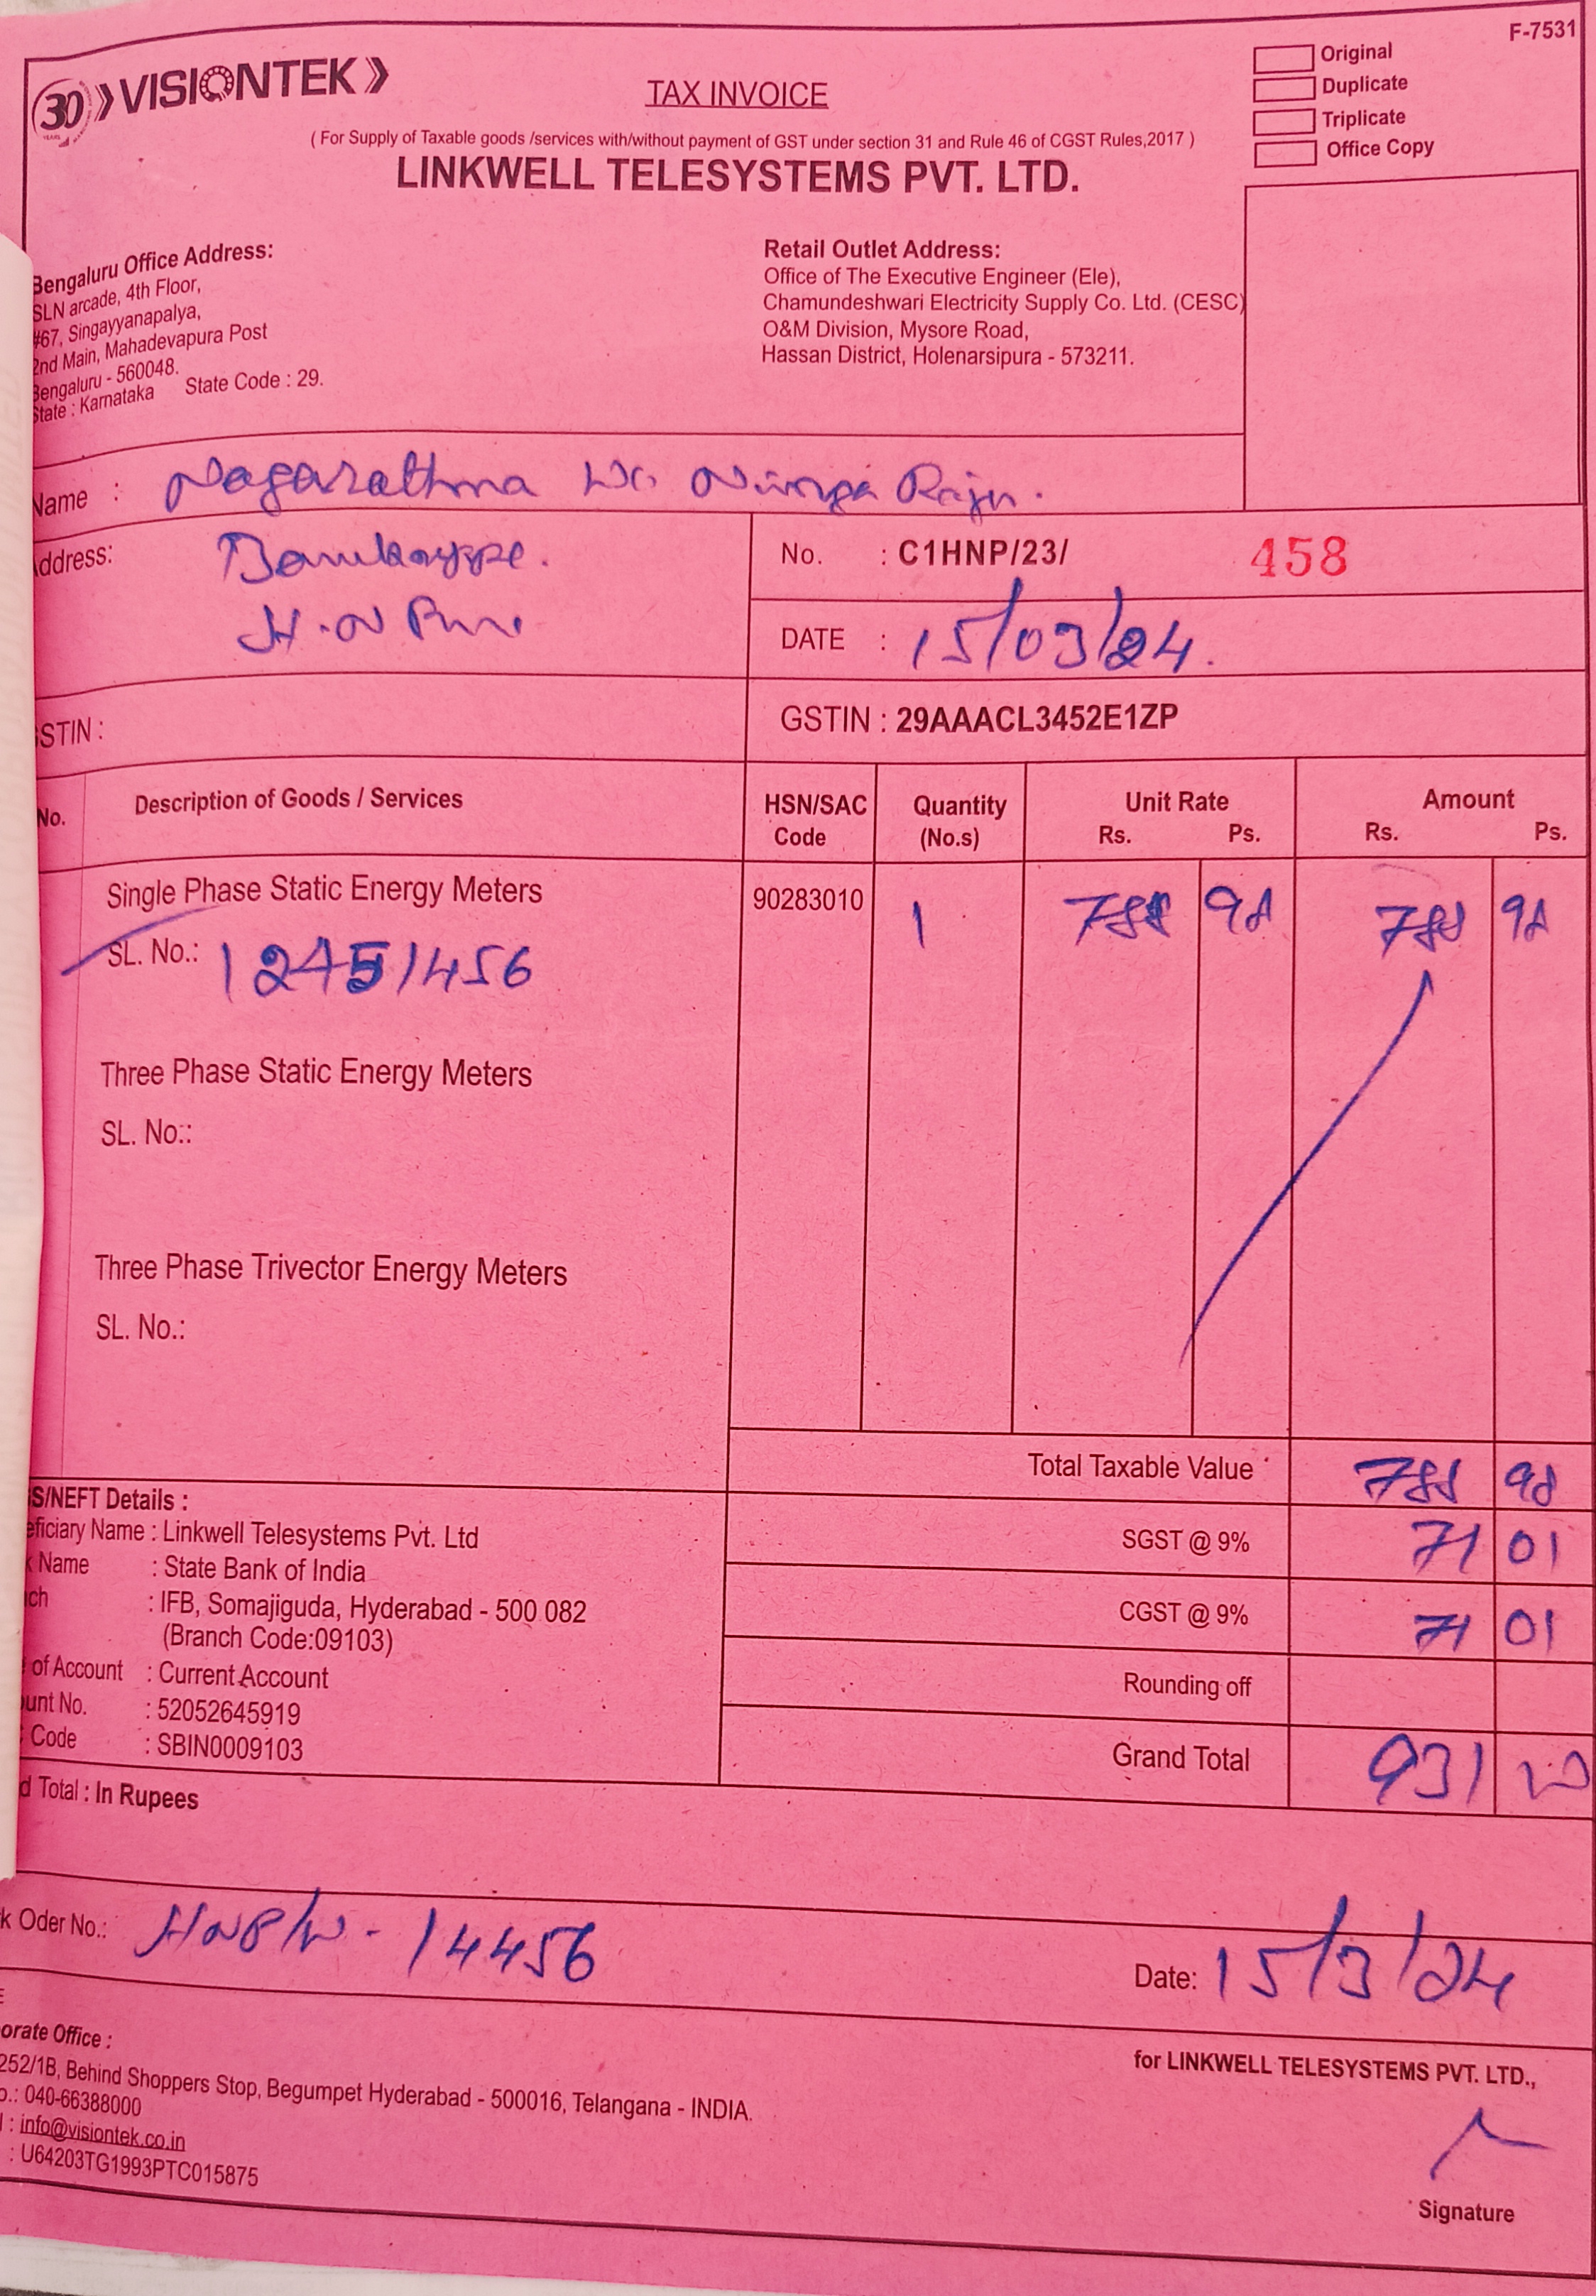 F-7531
30 VISIONTEK
TAX INVOICE
Original
Duplicate
Triplicate
Office Copy
( For Supply of Taxable goods /services with/without payment of GST under section 31 and Rule 46 of CGST Rules,2017 )
LINKWELL TELESYSTEMS PVT. LTD.
Bengaluru Office Address:
SLN arcade, 4th Floor,
#67, Singayyanapalya,
2nd Main, Mahadevapura Post
Bengaluru - 560048.
State : Karnataka State Code : 29.
Retail Outlet Address:
Office of The Executive Engineer (Ele),
Chamundeshwari Electricity Supply Co. Ltd. (CESC)
O&M Division, Mysore Road,
Hassan District, Holenarsipura - 573211.
Name : Nagarathna Ninga Raju.
Address:
H.N Pura
No. : C1HNP/23/ 458
DATE : 15/03/24.
GSTIN :
GSTIN : 29AAACL3452E1ZP
No. Description of Goods / Services HSN/SAC Code Quantity (No.s) Unit Rate Rs. Ps. Amount Rs. Ps.
Single Phase Static Energy Meters 90283010 1 788 98 788 98
SL. No.: 12451456
Three Phase Static Energy Meters
SL. No.:
Three Phase Trivector Energy Meters
SL. No.:
Total Taxable Value 788 98
SGST @ 9% 71 01
CGST @ 9% 71 01
Rounding off
Grand Total 931
S/NEFT Details :
eficiary Name : Linkwell Telesystems Pvt. Ltd
k Name : State Bank of India
ch : IFB, Somajiguda, Hyderabad - 500 082
(Branch Code:09103)
of Account : Current Account
unt No. : 52052645919
Code : SBIN0009103
d Total : In Rupees
k Oder No.: 14456
Date: 15/3/24
orate Office :
252/1B, Behind Shoppers Stop, Begumpet Hyderabad - 500016, Telangana - INDIA.
o.: 040-66388000
l : info@visiontek.co.in
: U64203TG1993PTC015875
for LINKWELL TELESYSTEMS PVT. LTD.,
Signature